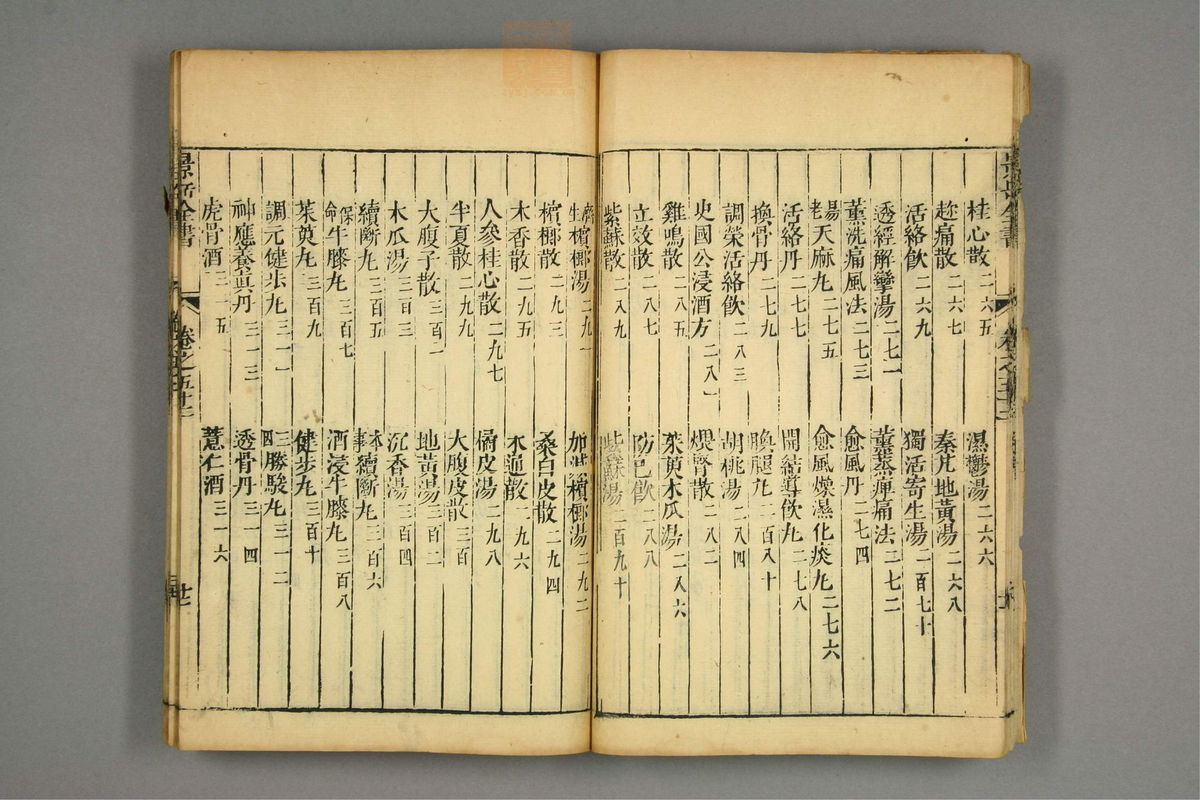 景岳全書 卷之五十三
桂心散二六五 濕鬱湯二六六
趂痛散二六七 秦艽地黃湯二六八
活絡飲二六九 獨活寄生湯二百七十
透經解攣湯二七一 薰蒸痺痛法二七二
薰洗痛風法二七三 愈風丹二七四
天麻丸二七五 愈風燥濕化痰丸二七六
活絡丹二七七 開結導飲丸二七八
換骨丹二七九 換腿丸二百八十
調榮活絡飲二八三 胡桃湯二八四
史國公浸酒方二八一 煨腎散二八二
雞鳴散二八五 茱萸木瓜湯二八六
立效散二八七 防已飲二八八
紫蘇散二八九 紫蘇湯二百九十
檳榔湯二九一 加減檳榔湯二九二
檳榔散二九三 桑白皮散二九四
木香散二九五 木通散二九六
人參桂心散二九七 橘皮湯二九八
半夏散二九九 大腹皮散三百
大腹子散三百一 地黃湯三百二
木瓜湯三百三 沉香湯三百四
續斷丸三百五 本事續斷丸三百六
保命牛膝丸三百七 酒浸牛膝丸三百八
茱萸丸三百九 健步丸三百十
調元健步丸三一一 三勝駿丸三一二
神應養眞丹三一三 透骨丹三一四
虎骨酒三一五 薏仁酒三一六
景岳全書 卷之五十三